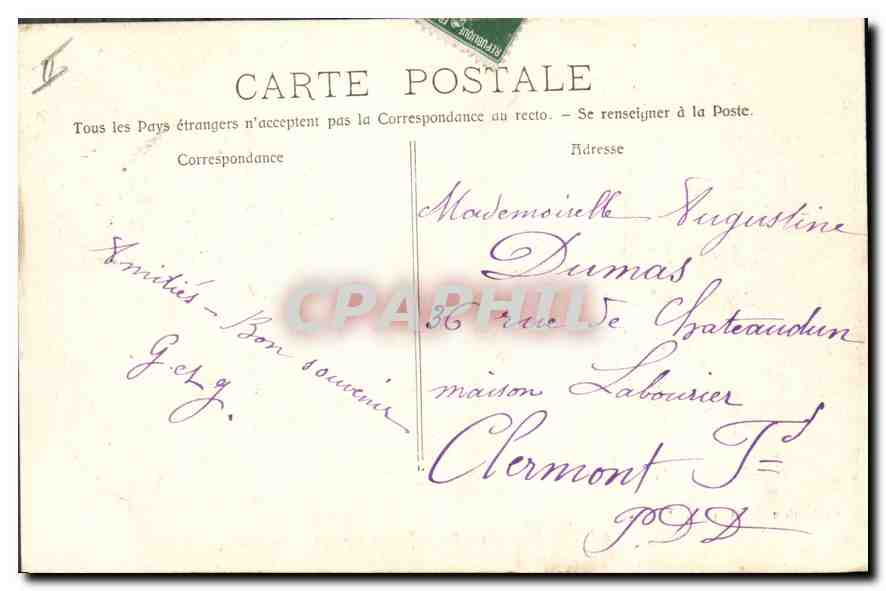 RÉPUBLIQUE FR
II
CARTE POSTALE
Tous les Pays étrangers n'acceptent pas la Correspondance au recto. - Se renseigner à la Poste.
Correspondance
Amitiés - Bon souvenir
G et g.
Adresse
Mademoiselle Augustine
Dumas
36 rue de Chateaudun
maison Labourier
Clermont Fd
P.D.D
CPAPHIL